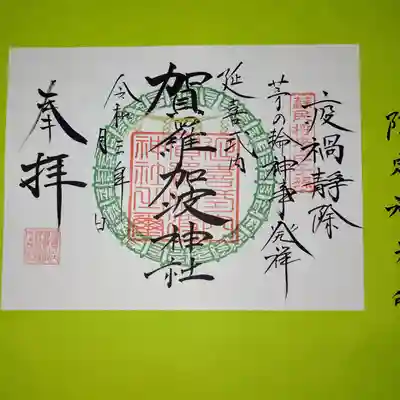 疫禍静除
茅の輪神事発祥
延喜式内
賀羅加波神社
令和三年
月 日
奉拝